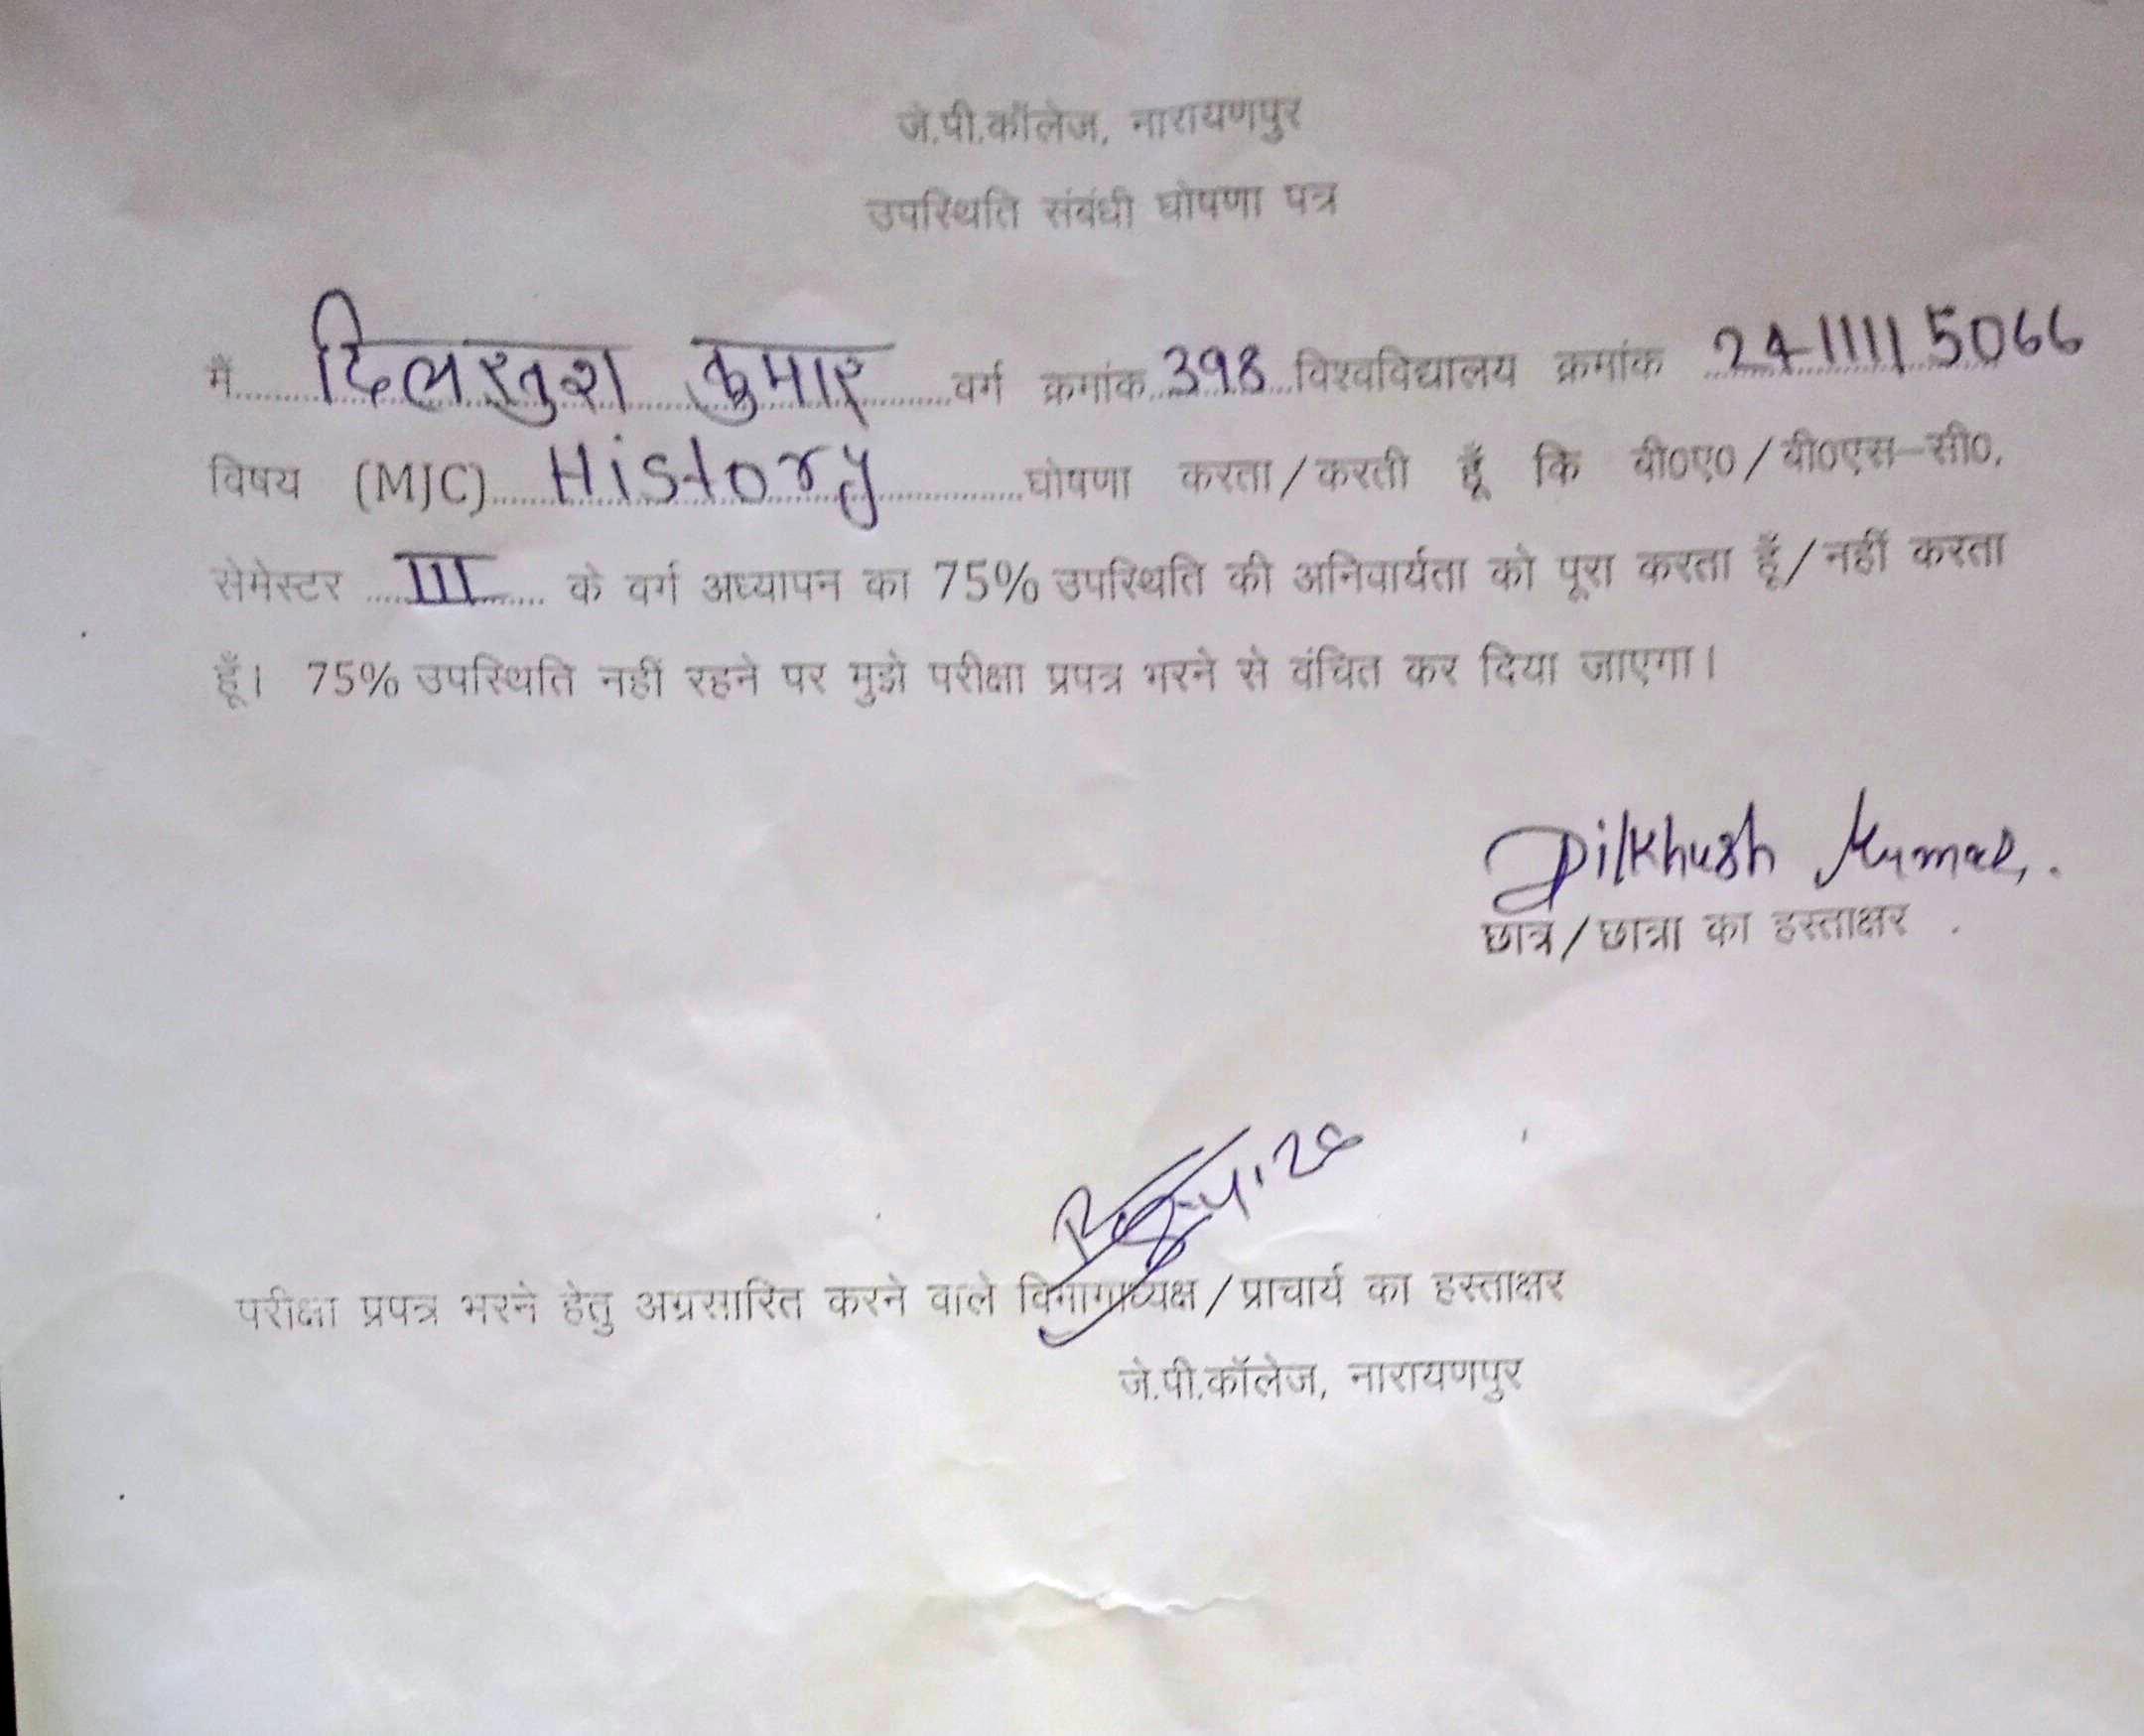 जे.पी.कॉलेज, नारायणपुर
उपस्थिति संबंधी घोषणा पत्र
मैं.....दिलखुश कुमार.....वर्ग क्रमांक 398 विश्वविद्यालय क्रमांक 2411115066
विषय (MJC) History घोषणा करता/करती हूँ कि बी०ए०/बी०एस–सी०,
सेमेस्टर III के वर्ग अध्यापन का 75% उपस्थिति की अनिवार्यता को पूरा करता हूँ/नहीं करता
हूँ। 75% उपस्थिति नहीं रहने पर मुझे परीक्षा प्रपत्र भरने से वंचित कर दिया जाएगा।
Dilkhush Kumar
छात्र/छात्रा का हस्ताक्षर
परीक्षा प्रपत्र भरने हेतु अग्रसारित करने वाले विभागाध्यक्ष/प्राचार्य का हस्ताक्षर
जे.पी.कॉलेज, नारायणपुर